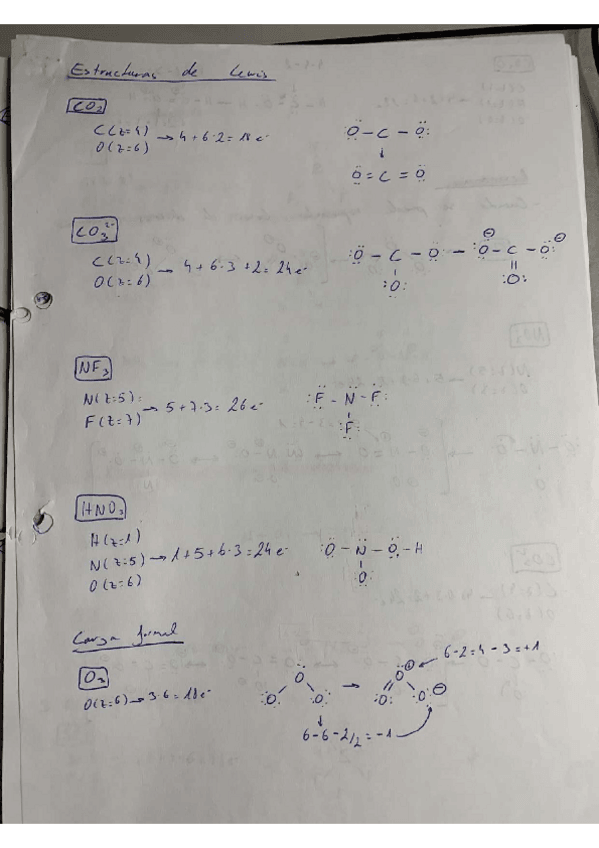 Estructuras de Lewis
CO₂
C(z=4)
O(z=6) → 4+6·2=18e⁻
:Ö – C – Ö:
↓
Ö = C = Ö
CO₃²⁻
C(z=4)
O(z=6) → 4+6·3+2=24e⁻
:Ö – C – Ö: — :Ö – C – Ö: ⊖ ⊖
| ||
:O: :O:
NF₃
N(z=5):
F(z=7) → 5+7·3=26e⁻
:F – N – F:
|
:F:
HNO₃
H(z=1)
N(z=5) → 1+5+6·3=24e⁻
O(z=6)
:Ö – N – O – H
|
:O:
Carga formal
O₃
O(z=6) → 3·6=18e⁻
O
:O: :O:
→
O ⊕
O O: ⊖
6-2=4-3=+1
6-6-2/2=-1